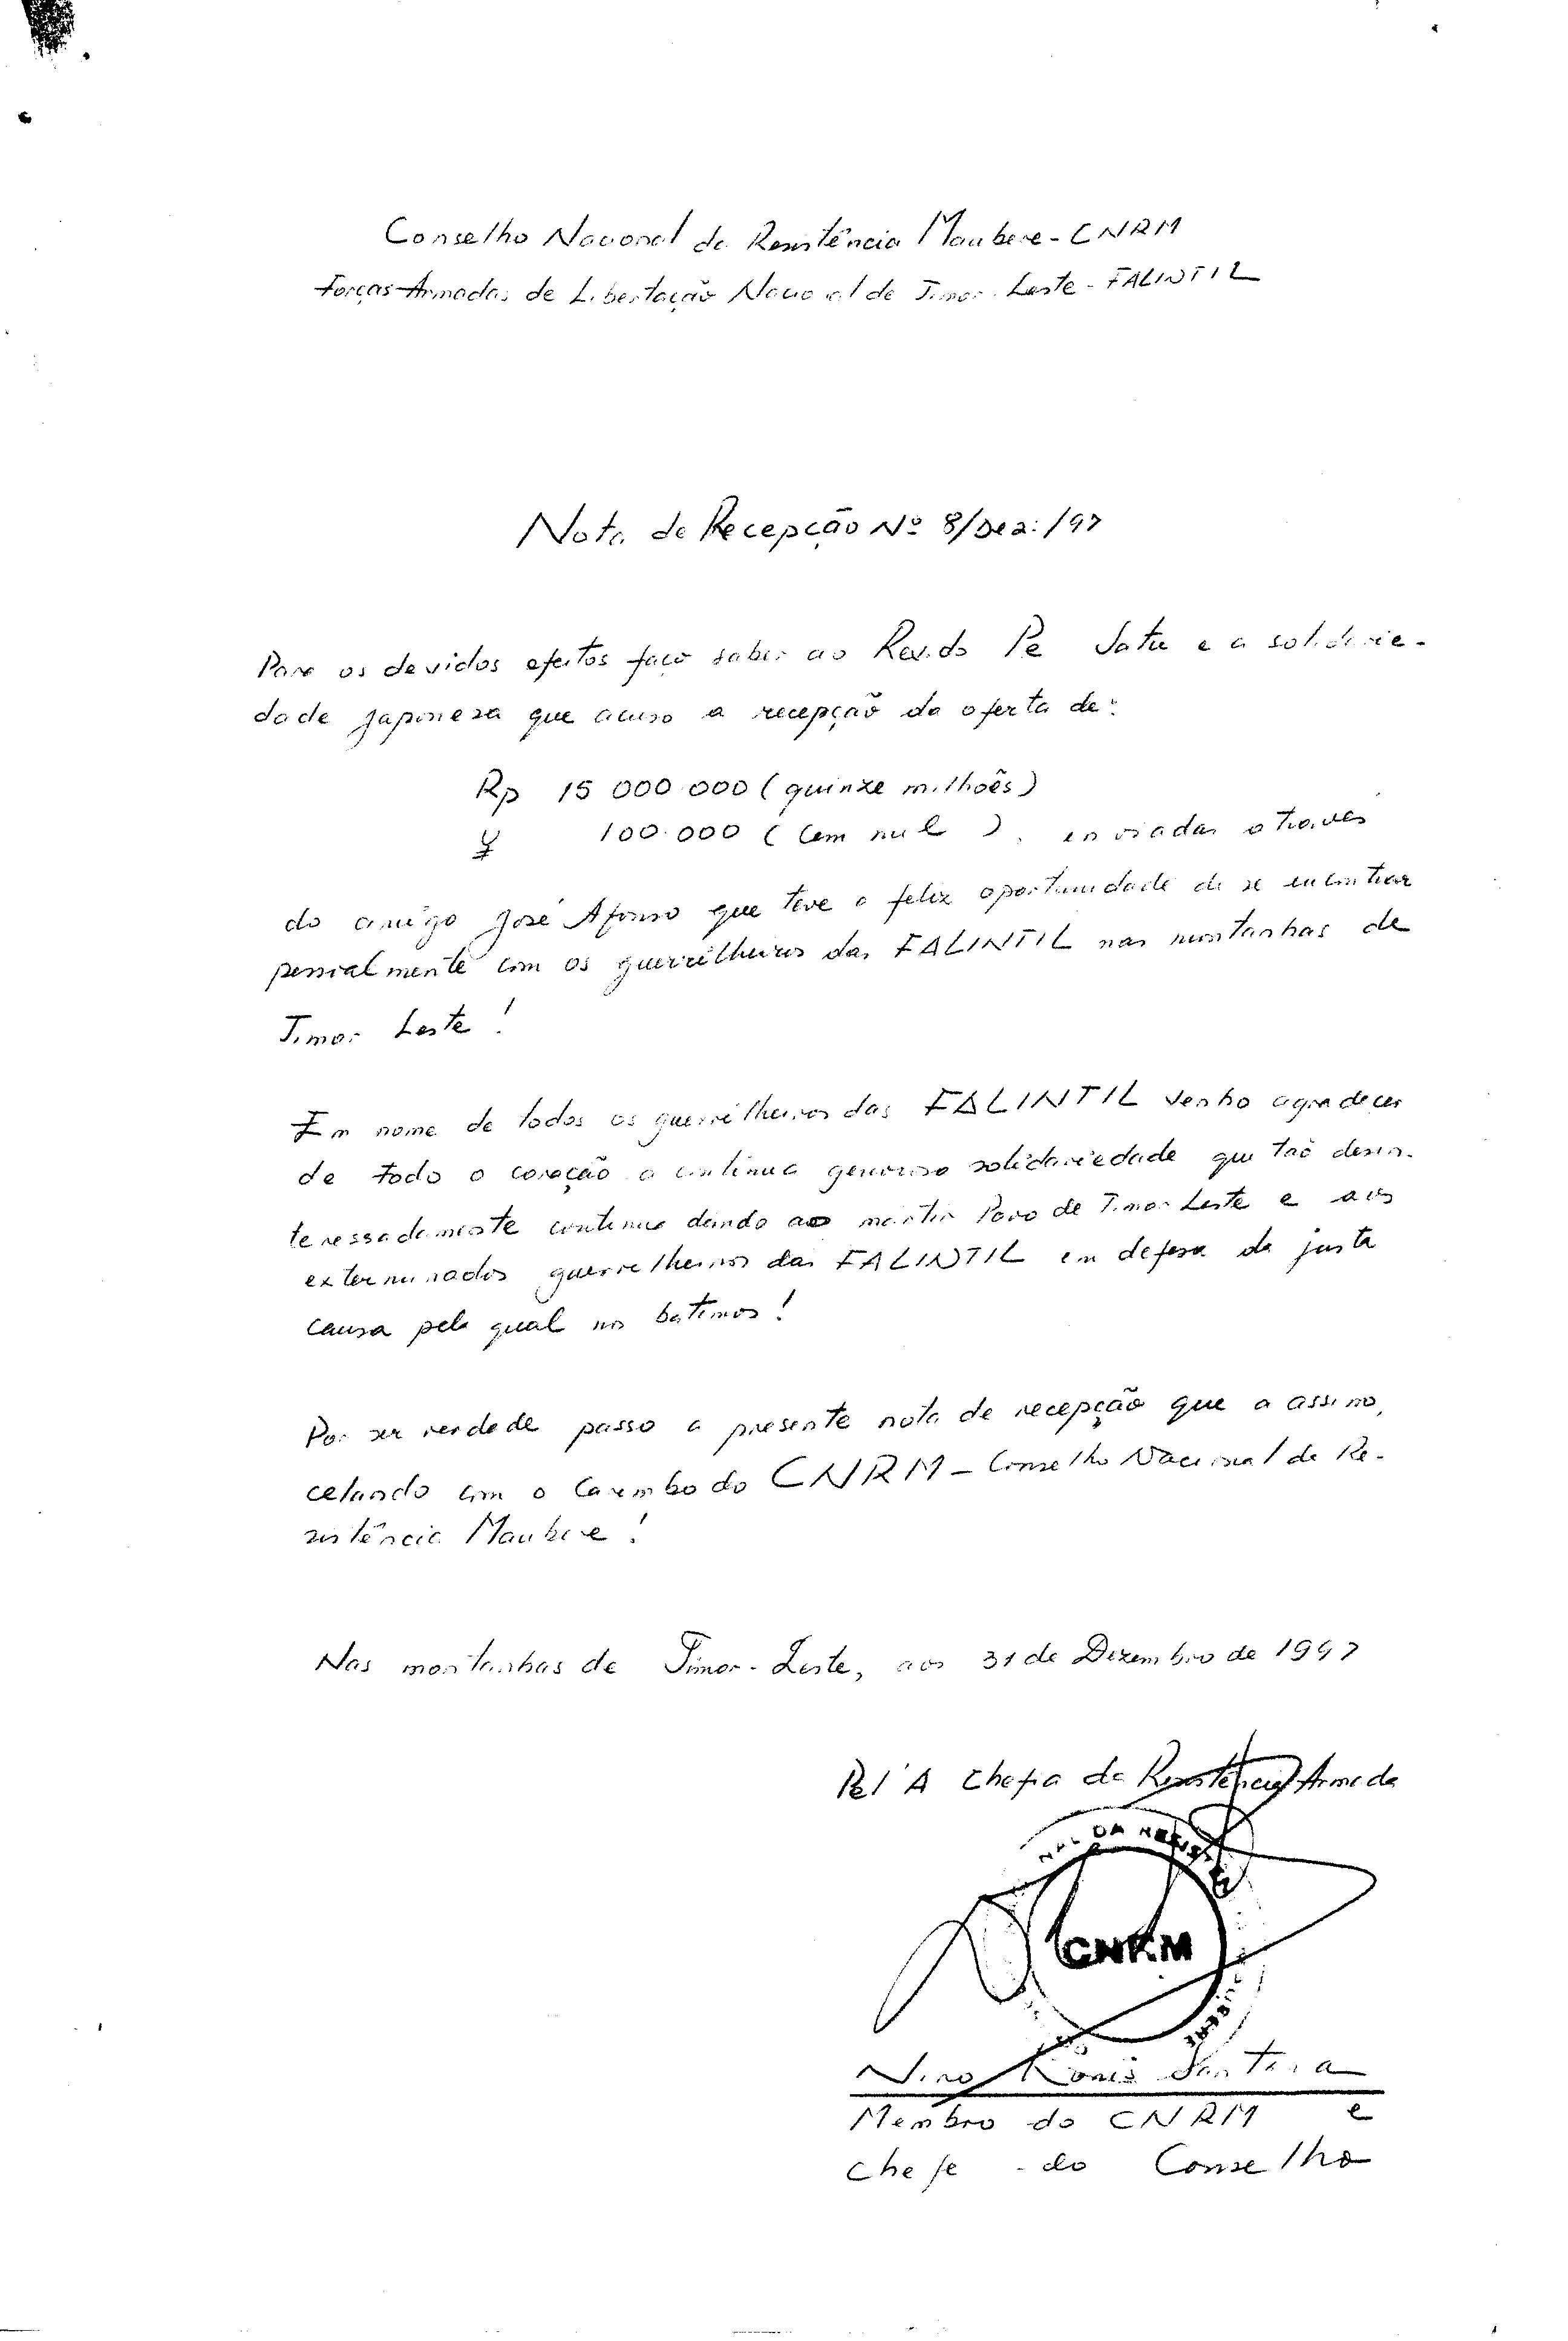 Conselho Nacional da Resistência Maubere - CNRM
Forças Armadas de Libertação Nacional de Timor Leste - FALINTIL
Nota de Recepção Nº 8/Dez:/97
Para os devidos efeitos faço saber ao Revdo Pe Jatu e a solidarie-
dade japonesa que acuso a recepção da oferta de:
Rp 15 000.000 (quinze milhoẽs)
¥ 100.000 (cem mil ). enviadas através
do amigo José Afonso que teve a feliz oportunidade de se encontrar
pessoalmente com os guerrilheiros das FALINTIL nas montanhas de
Timor Leste!
Em nome de todos os guerrilheiros das FALINTIL venho agradecer
de todo o coração a contínua generosa solidariedade que tão desin-
teressadamente continua dando ao martir Povo de Timor Leste e aos
exterminados guerrilheiros das FALINTIL em defesa da justa
causa pela qual nos batimos!
Por ser verdade passo a presente nota de recepção que a assino,
celando com o carimbo do CNRM - Conselho Nacional da Re-
sistência Maubere!
Nas montanhas de Timor-Leste, aos 31 de Dezembro de 1997
Pel'A Chefia da Resistência Armada
NAL DA RESIST
CNRM
UBERE
Nino Konis Santana
Membro do CNRM e
Chefe do Conselho